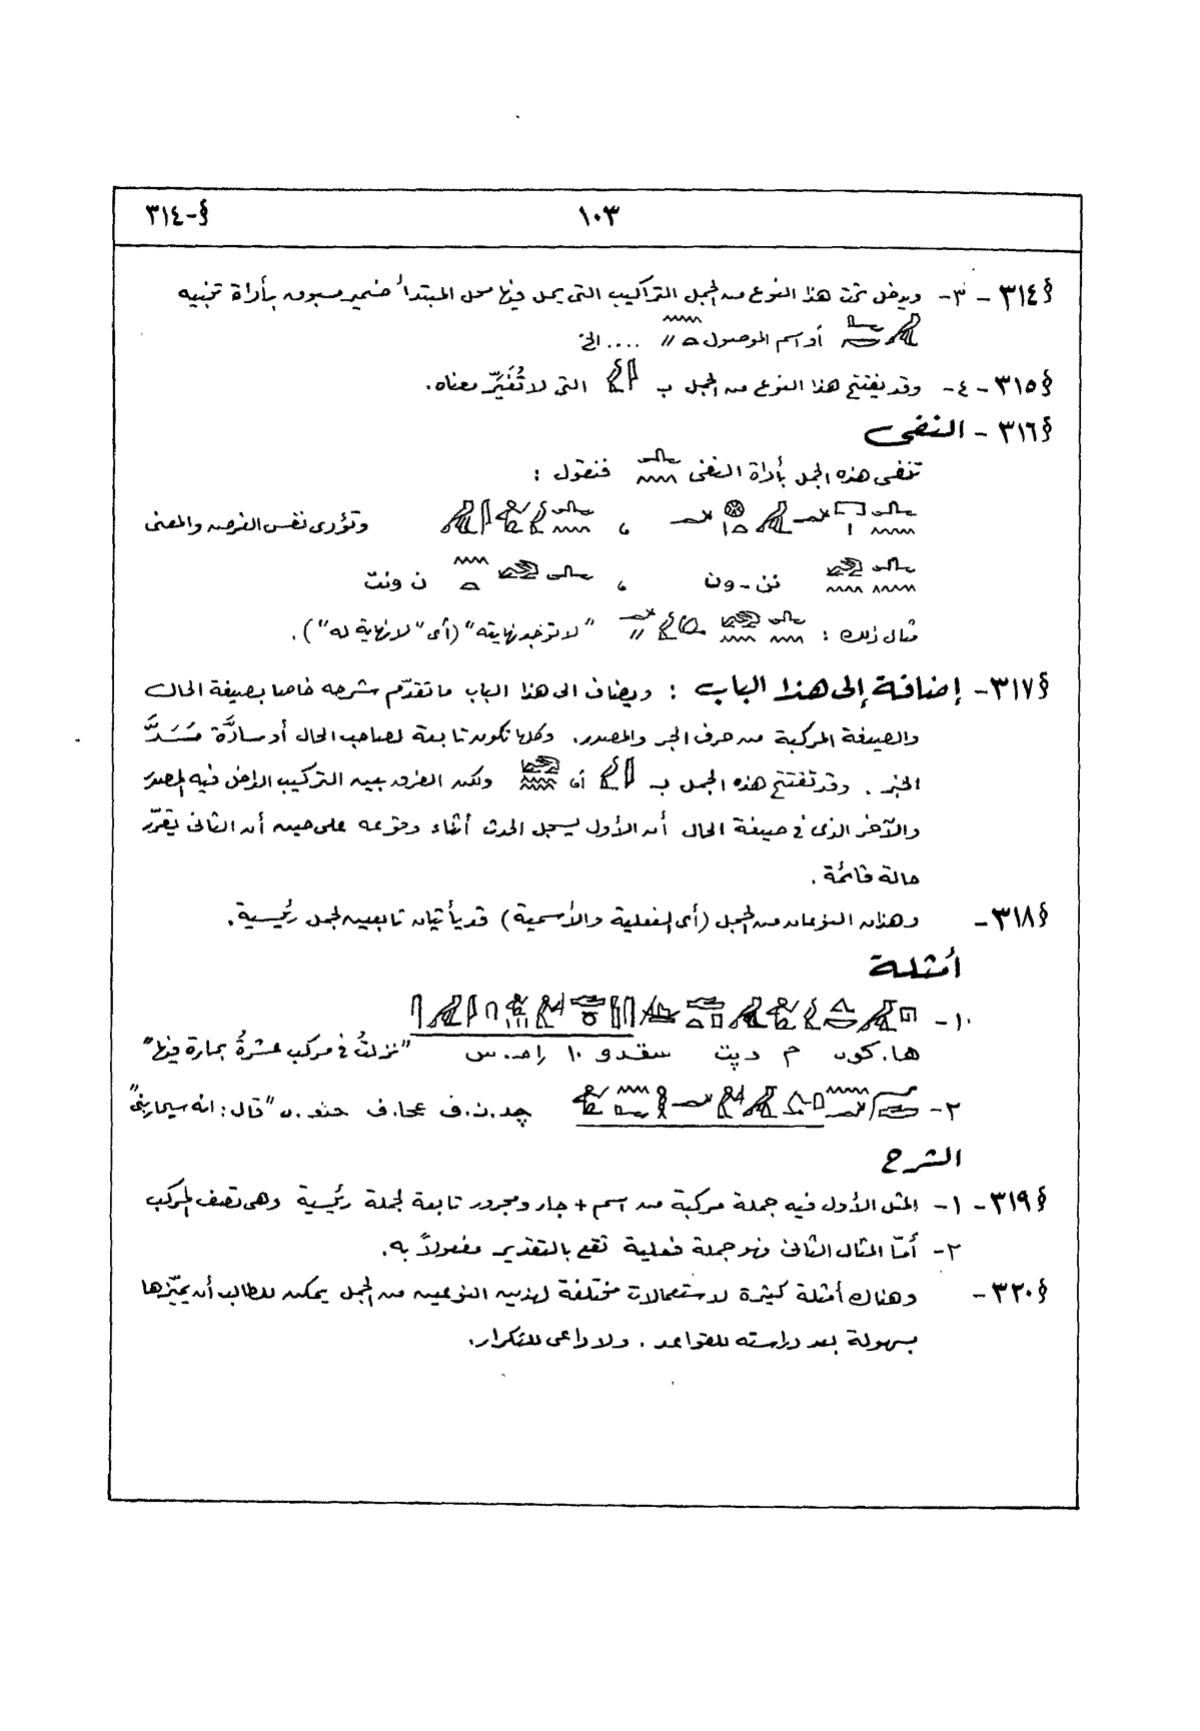 §-٣١٤ ١٠٣
§٣١٤ - ٣- ويدخل تحت هذا النوع من الجمل التراكيب التى يحل فيها محل المبتدأ ضمير مسبوق بأداة تنبيه
أو اسم الموصول .... الخ
§٣١٥ - ٤- وقد يفتتح هذا النوع من الجمل ب التى لا تُغَيِّر معناه.
§٣١٦ - النفى
تنفى هذه الجمل بأداة النفى فنقول :
، وتؤدى نفس الغرض والمعنى
نن - ون ، ن ونت
مثال ذلك : "لا توجد نهايته" (أى "لا نهاية له").
§٣١٧ - إضافة إلى هذا الباب : ويضاف الى هذا الباب ما تقدّم شرحه خاصا بصيغة الحال
والصيغة المركبة من حرف الجر والمصدر. وكلها تكون تابعة لصاحب الحال أو سادَّة مَسَدَّ
الخبر . وقد تفتتح هذه الجمل بـ أو ولكن الفرق بين التركيب الداخل فيه المصدر
والآخر الذى فى صيغة الحال أن الأول يسجل الحدث أثناء وقوعه على حين أن الثانى يقرّر
حالة قائمة .
§٣١٨ - وهذان النوعان من الجمل (أى الفعلية والأسمية) قد يأتيان تابعين لجمل رئيسية.
أمثلة
١-
ها.كون م دپت سقدو ١٠ راح.س "نزلتُ فى مركب عشرةُ بحارة فيها"
٢- چد.ن.ف عحا.ف حنع.ى "قال : انه سيحاربنى"
الشرح
§٣١٩ - ١- المثل الأول فيه جملة مركبة من اسم + جار ومجرور تابعة لجملة رئيسية وهى تصف المركب
٢- أمّا المثال الثانى فهو جملة فعلية تقع بالتقدير مفعولاً به.
§٣٢٠ - وهناك أمثلة كثيرة لاستعمالات مختلفة لهذين النوعين من الجمل يمكن للطالب أن يميّزها
بسهولة بعد دراسته للقواعد . ولا داعى للتكرار.